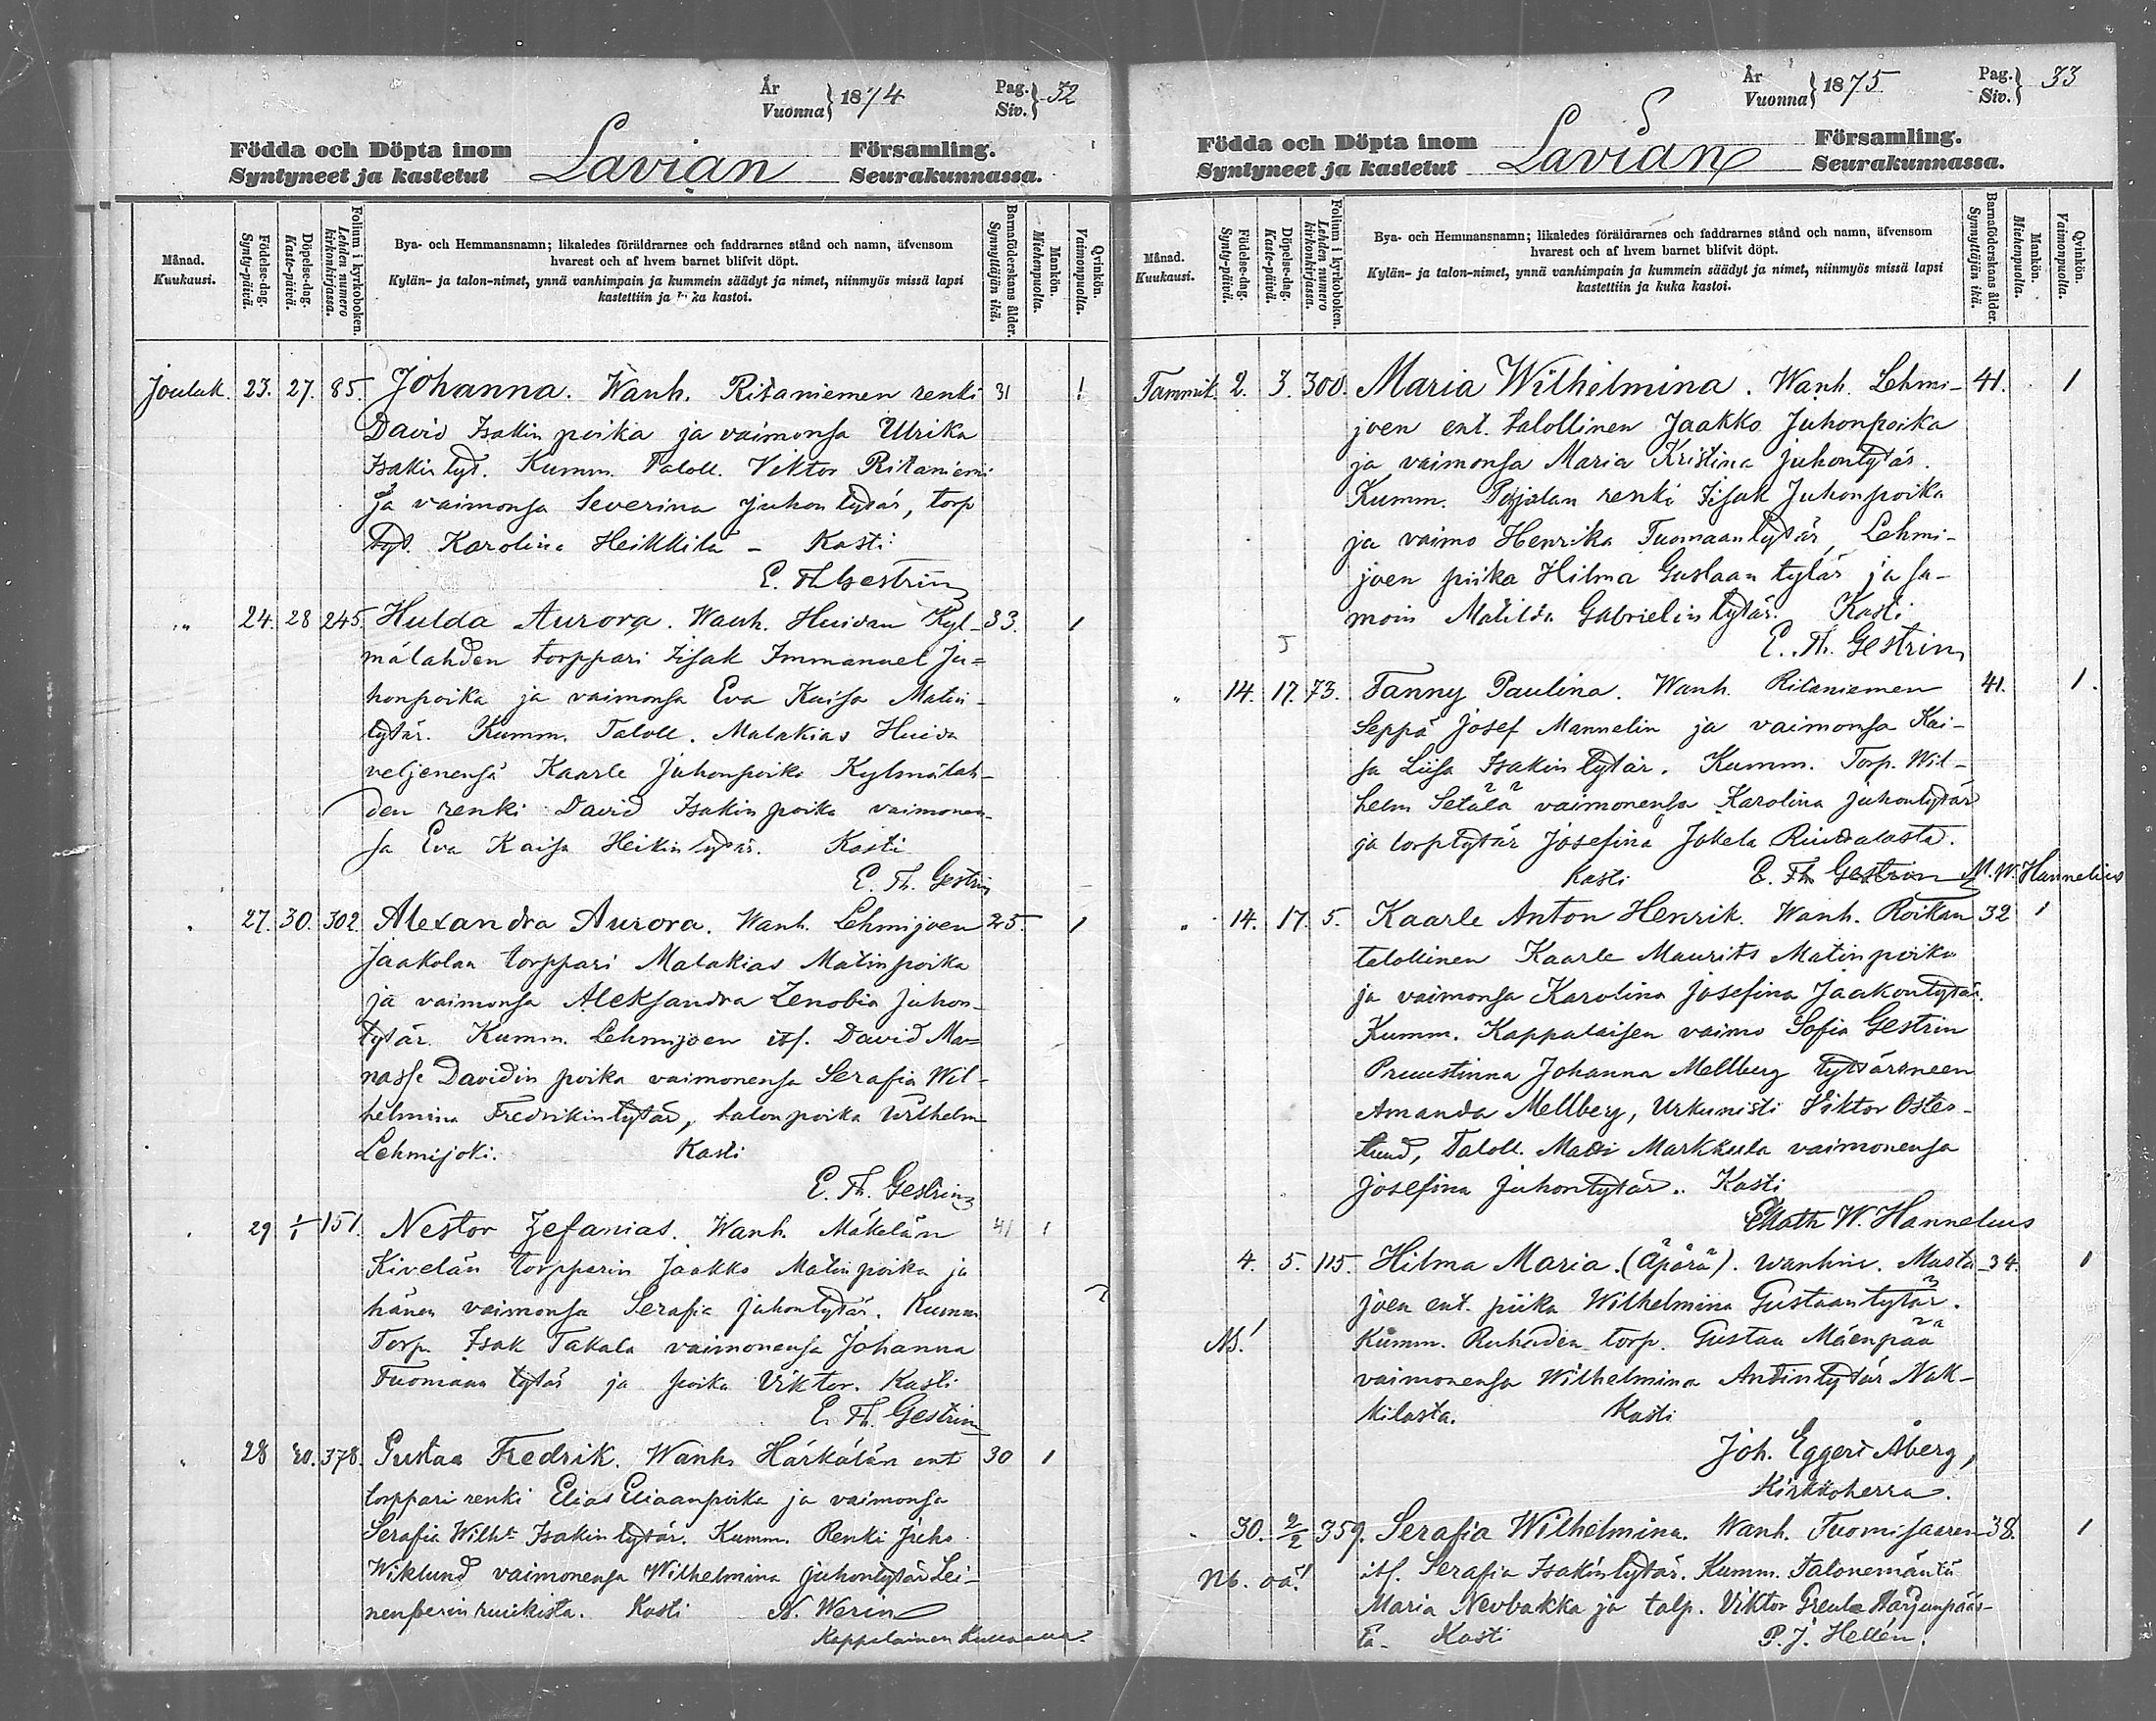 År
Vuonna } 1874
Pag.
Siv. } 32
Födda och Döpta inom
Syntyneet ja kastetut
Lavian
Församling.
Seurakunnassa.
Månad.
Kuukausi.
Födelse-dag.
Synty-päivä.
Döpelse-dag.
Kaste-päivä.
Folium i kyrkoboken.
Lehden numero
kirkonkirjassa.
Bya- och Hemmansnamn; likaledes föräldrarnes och faddrarnes stånd och namn, äfvensom
hvarest och af hvem barnet blifvit döpt.
Kylän- ja talon-nimet, ynnä vanhimpain ja kummein säädyt ja nimet, niinmyös missä lapsi
kastettiin ja kuka kastoi.
Barnaföderskans ålder.
Synnyttäjän ikä.
Mankön.
Miehenpuolta.
Qvinkön.
Vaimonpuolta.
Jouluk. 23. 27. 85. Johanna. Wanh. Ritaniemen renki 31 1
David Isakin poika ja vaimonsa Ulrika
Isakin tyt. Kumm. Taloll. Viktor Ritaniemi
ja vaimonsa Severina Juhon tytär, torp
tyt. Karolina Heikkilä - Kasti
E. Th Gestrin
„ 24. 28 245. Hulda Aurora. Wanh. Huidan Kyl- 33. 1
mälahden torppari Iisak Immanuel Ju=
honpoika ja vaimonsa Eva Kaisa Matin-
tytär. Kumm. Taloll. Malakias Huida
veljenensä Kaarle Juhonpoika Kylmälah-
den renki David Isakin poika vaimonen-
sa Eva Kaisa Heikin tytär. Kasti
E. Th. Gestrin
„ 27. 30. 302 Alexandra Aurora. Wanh. Lehmijoen 25. 1
Jaakolan torppari Malakias Matinpoika
ja vaimonsa Aleksandra Zenobia Juhon-
tytär. Kumm. Lehmijoen its. David Ma=
nasse Davidin poika vaimonensa Serafia Wil-
helmina Fredrikintytär, talonpoika Wilhelm
Lehmijoki. Kasti
E. Th. Gestrin
„ 29 1/1 151 Nestor Zefanias. Wanh. Mäkelän 41 1
Kivelän torpparin Jaakko Matinpoika ja
hänen vaimonsa Serafia Juhontytär. Kumm
Torp. Isak Takala vaimonensa Johanna
Tuomaan tytär ja poika Viktor. Kasti
E. Th. Gestrin
„ 28 30. 378. Gustaa Fredrik. Wanh. Härkälän ent 30 1
torppari renki Elias Eliaanpoika ja vaimonsa
Serafia Wilh: Isakin tytär. Kumm. Renki Juho
Wiklund vaimonensa Wilhelmina Juhontytär Lei-
Kasti N. Werin
Kappalainen
År
Vuonna } 1875.
Pag.
Siv. } 33
Födda och Döpta inom
Syntyneet ja kastetut
Lavian
Församling.
Seurakunnassa.
Månad.
Kuukausi.
Födelse-dag.
Synty-päivä.
Döpelse-dag.
Kaste-päivä.
Folium i kyrkoboken.
Lehden numero
kirkonkirjassa.
Bya- och Hemmansnamn; likaledes föräldrarnes och faddrarnes stånd och namn, äfvensom
hvarest och af hvem barnet blifvit döpt.
Kylän- ja talon-nimet, ynnä vanhimpain ja kummein säädyt ja nimet, niinmyös missä lapsi
kastettiin ja kuka kastoi.
Barnaföderskans ålder.
Synnyttäjän ikä.
Mankön.
Miehenpuolta.
Qvinkön.
Vaimonpuolta.
Tammik. 2. 3. 300. Maria Wilhelmina. Wanh. Lehmi- 41. 1
joen ent. talollinen Jaakko Juhonpoika
ja vaimonsa Maria Kristina Juhontytär.
Kumm. Pojalan renki Iisak Juhonpoika
ja vaimo Henrika Tuomaantytär, Lehmi-
joen piika Hilma Gustaan tytär ja sa-
moin Matilda Gabrielin tytär. Kasti
E. Th. Gestrin
„ 14. 17. 73. Fanny Paulina. Wanh. Ritaniemen 41. 1.
Seppä Josef Mannelin ja vaimonsa Kai-
sa Liisa Isakin tytär. Kumm. Torp. Wil-
helm Setälä vaimonensa Karolina Juhontytär
ja torptytär Josefina Jokela Riudalasta.
Kasti E. Th Gestrin M. W. Hannelius
„ 14. 17. 5. Kaarle Anton Henrik. Wanh. Roikan 32 1
talollinen Kaarle Maurits Matinpoika
ja vaimonsa Karolina Josefina Jaakontytär.
Kumm. Kappalaisen vaimo Sofia Gestrin
Pruustinna Johanna Mellberg tyttärineen
Amanda Mellberg, Urkunisti Viktor Öster-
lund, Taloll. Matti Markkula vaimonensa
Josefina Juhontytär. Kasti
Math W. Hannelius
4. 5. 115. Hilma Maria. (äpärä). Wanhin. Musta- 34. 1
joen ent. piika Wilhelmina Gustaantytär.
NB! Kumm. Ruhaden torp. Gustaa Mäenpää
vaimonensa Wilhelmina Antintytär Nak-
kilasta. Kasti
Joh. Eggert Åberg,
Kirkkoherra.
„ 30. 2/2 359. Serafia Wilhelmina. Wanh. Tuomisaaren 38. 1
Nb. oä! its. Serafia Isakintytär. Kumm. Talonemäntä
Maria Nevbakka ja talp. Viktor Greula Harjunpääs-
tä. Kasti P. J. Hellén.